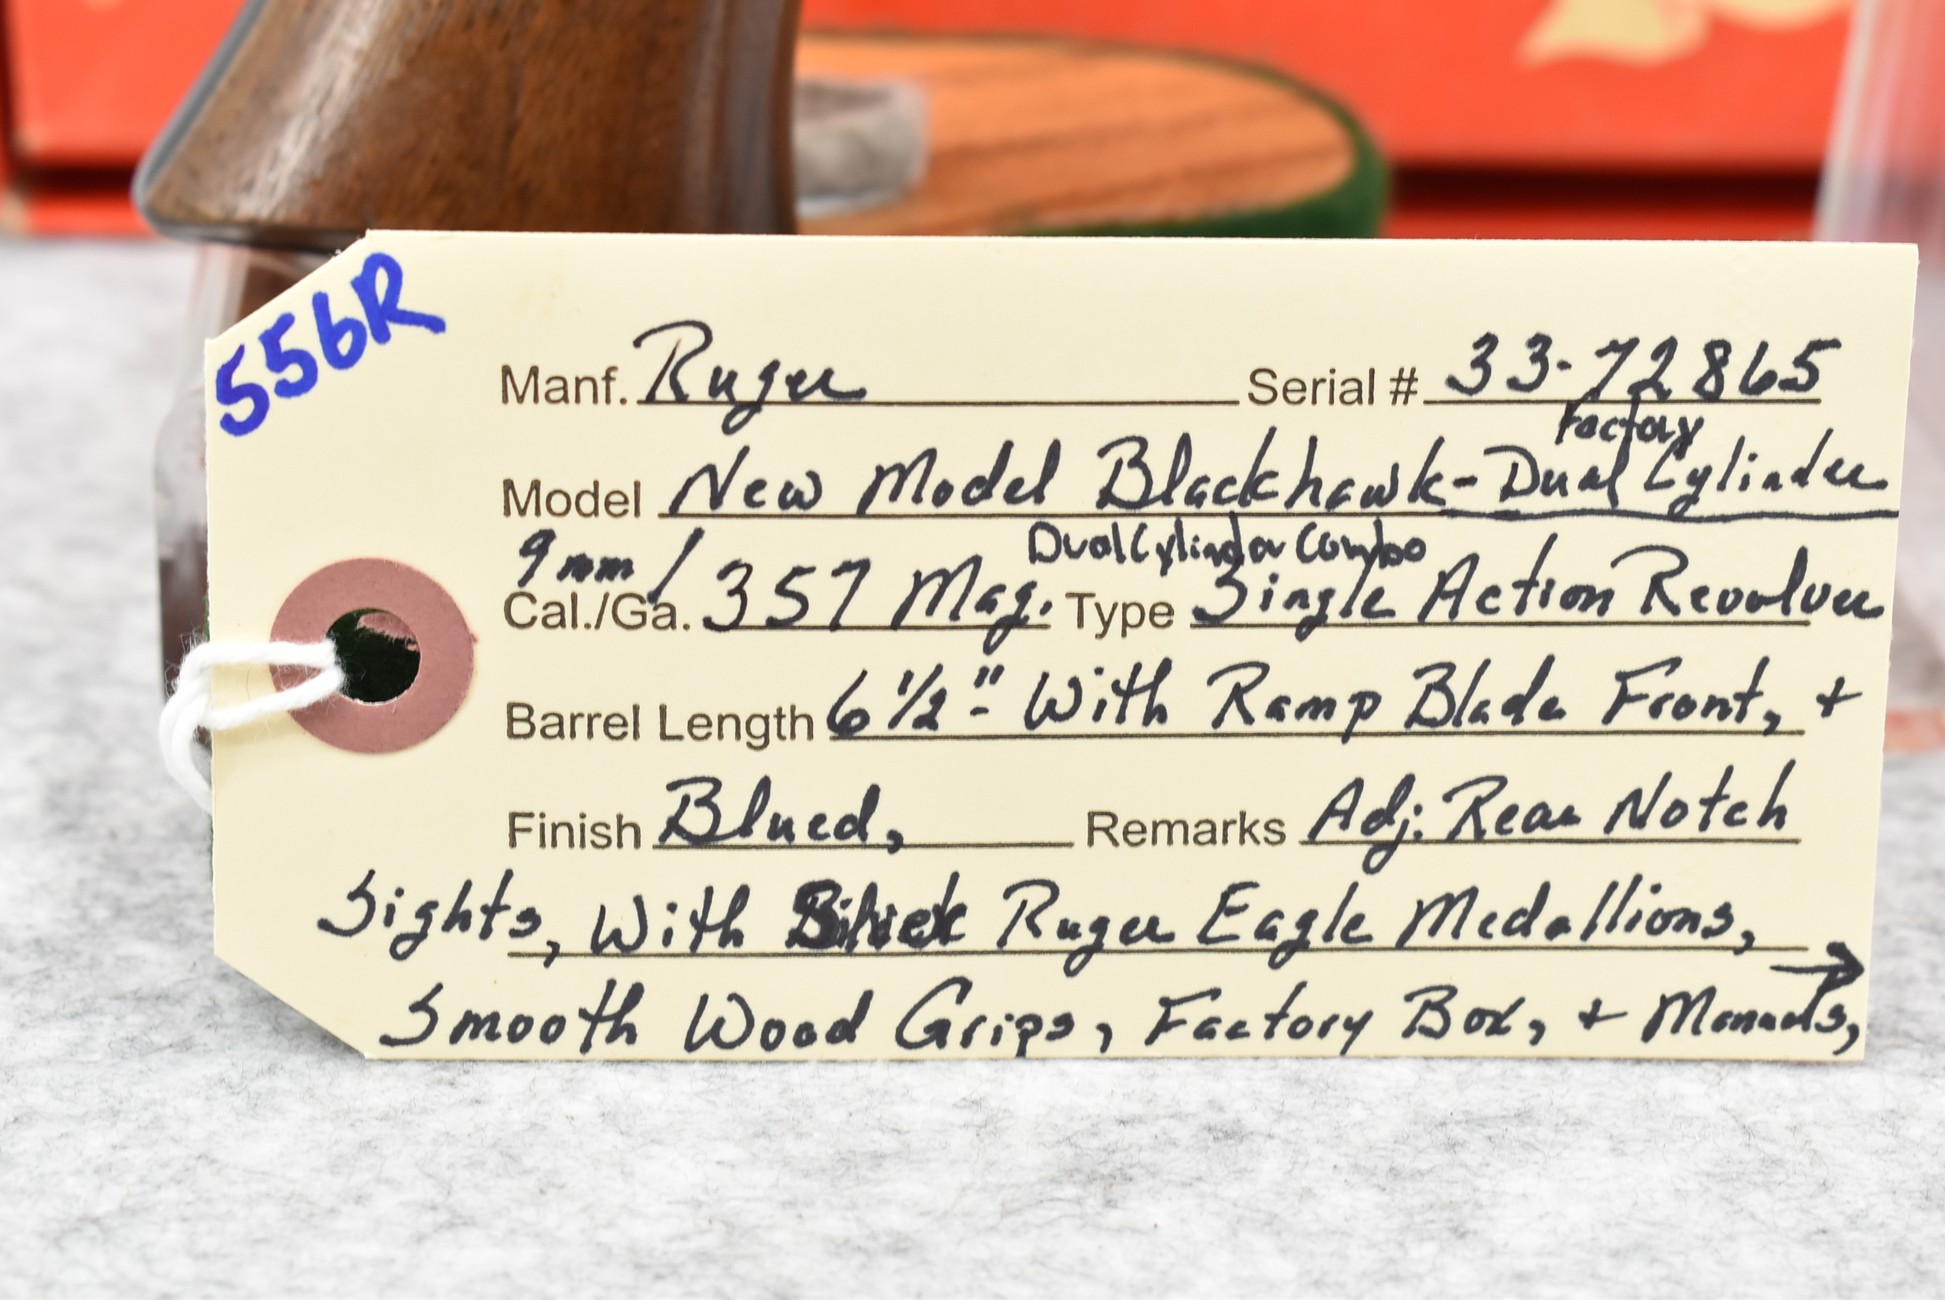 556R
Manf. Ruger Serial # 33-72865
Factory
Model New Model Blackhawk-Dual Cylinder
9mm/ Dual Cylinder Combo
Cal./Ga. 357 Mag. Type Single Action Revolver
Barrel Length 6 1/2" With Ramp Blade Front, +
Finish Blued, Remarks Adj. Rear Notch
Sights, With Ruger Eagle Medallions,
Smooth Wood Grips, Factory Box, + Manuals, →